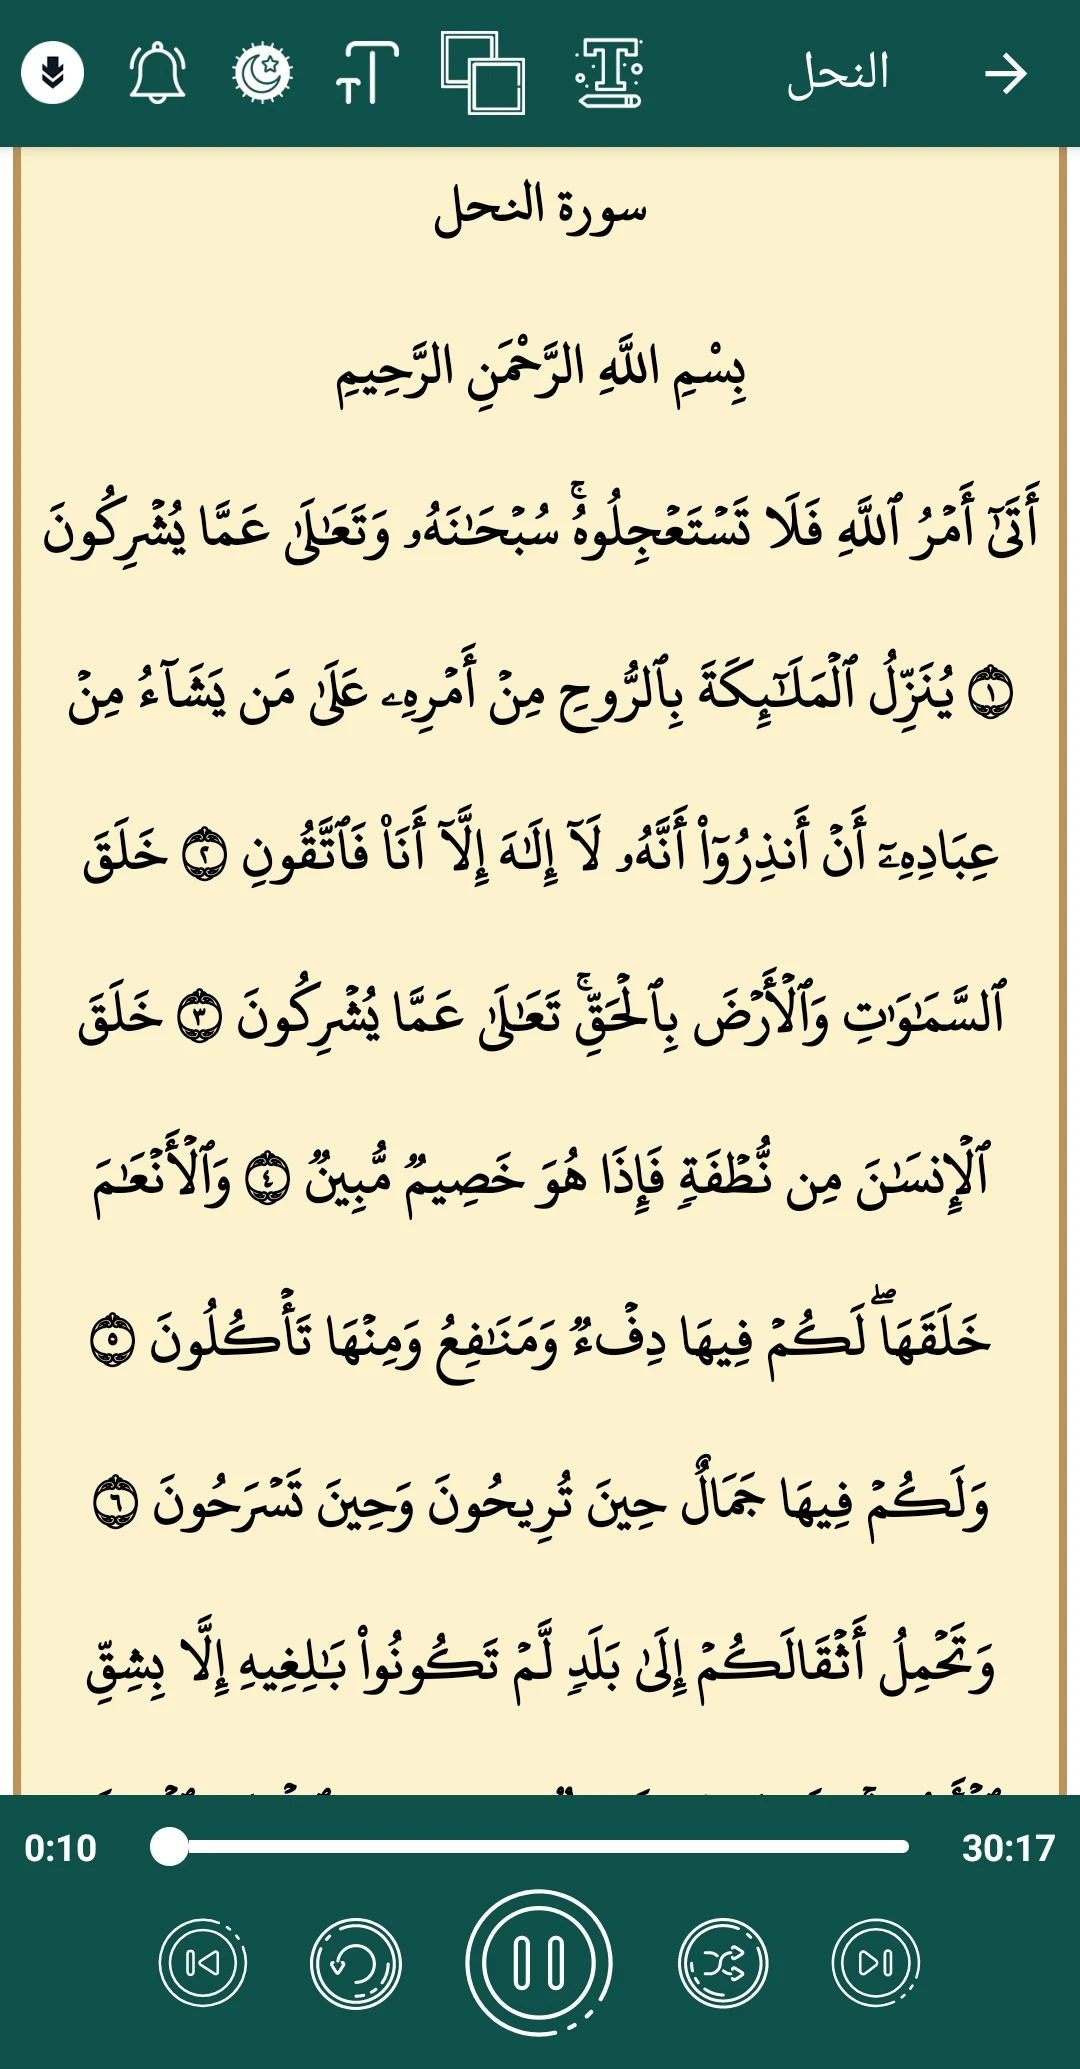 النحل
سورة النحل
بِسْمِ اللَّهِ الرَّحْمَنِ الرَّحِيمِ
أَتَىٰٓ أَمۡرُ ٱللَّهِ فَلَا تَسۡتَعۡجِلُوهُۚ سُبۡحَٰنَهُۥ وَتَعَٰلَىٰ عَمَّا يُشۡرِكُونَ
١ يُنَزِّلُ ٱلۡمَلَٰٓئِكَةَ بِٱلرُّوحِ مِنۡ أَمۡرِهِۦ عَلَىٰ مَن يَشَآءُ مِنۡ
عِبَادِهِۦٓ أَنۡ أَنذِرُوٓاْ أَنَّهُۥ لَآ إِلَٰهَ إِلَّآ أَنَا۠ فَٱتَّقُونِ ٢ خَلَقَ
ٱلسَّمَٰوَٰتِ وَٱلۡأَرۡضَ بِٱلۡحَقِّۚ تَعَٰلَىٰ عَمَّا يُشۡرِكُونَ ٣ خَلَقَ
ٱلۡإِنسَٰنَ مِن نُّطۡفَةٖ فَإِذَا هُوَ خَصِيمٞ مُّبِينٞ ٤ وَٱلۡأَنۡعَٰمَ
خَلَقَهَاۖ لَكُمۡ فِيهَا دِفۡءٞ وَمَنَٰفِعُ وَمِنۡهَا تَأۡكُلُونَ ٥
وَلَكُمۡ فِيهَا جَمَالٌ حِينَ تُرِيحُونَ وَحِينَ تَسۡرَحُونَ ٦
وَتَحۡمِلُ أَثۡقَالَكُمۡ إِلَىٰ بَلَدٖ لَّمۡ تَكُونُواْ بَٰلِغِيهِ إِلَّا بِشِقِّ
0:10
30:17